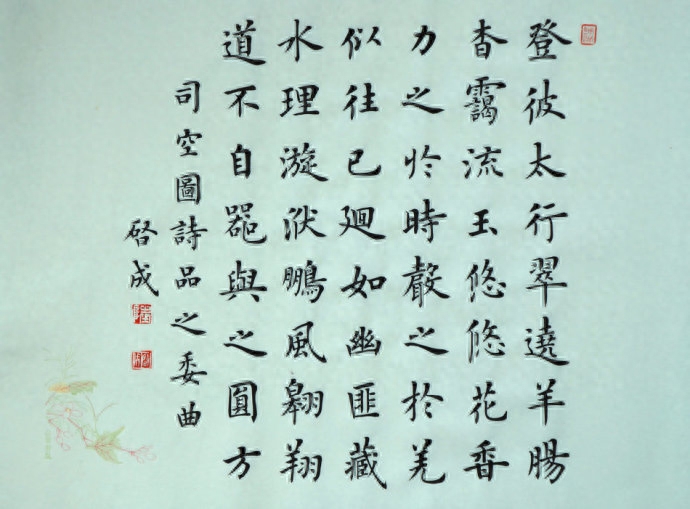 登彼太行翠遶羊腸
杳靄流玉悠悠花香
力之於時聲之於羌
似往已迴如幽匪藏
水理漩洑鵬風翱翔
道不自器與之圓方
司空圖詩品之委曲
啓成